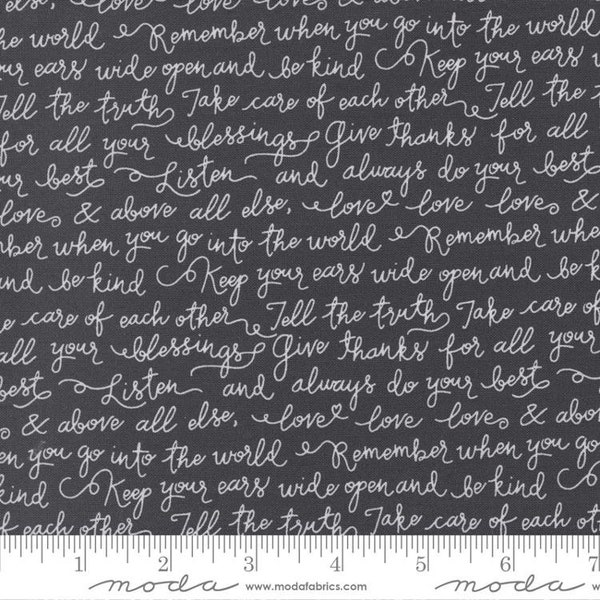 else, love love love & above all else, love
the world Remember when you go into the world
your ears wide open and be kind Keep your ears wide
Tell the truth Take care of each other Tell the t
for all your blessings Give thanks for all
your best Listen and always do your best
love & above all else, love love love &
Remember when you go into the world Remember whe
and be kind Keep your ears wide open and be k
e care of each other Tell the truth Take care of
all your blessings Give thanks for all your
best Listen and always do your best
& above all else, love love love & abo
en you go into the world Remember when you go
kind Keep your ears wide open and be kind
of each other Tell the truth Take care of
1 2 3 4 5 6 7
moda www.modafabrics.com moda